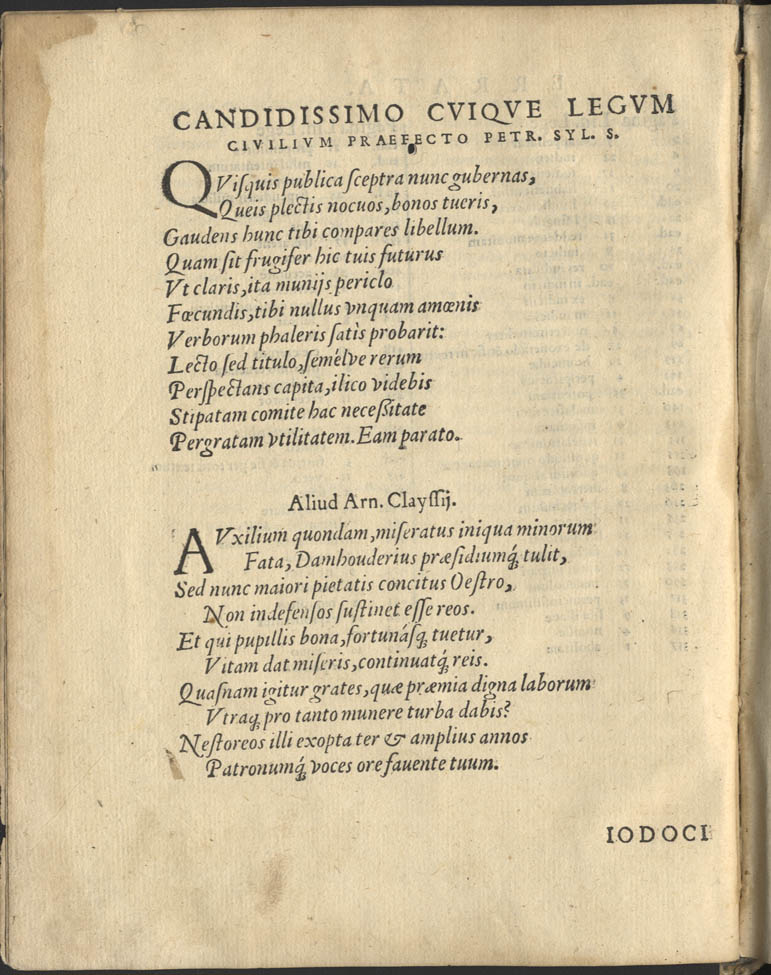 CANDIDISSIMO CVIQVE LEGVM
CIVILIVM PRAEFECTO PETR. SYL. S.
QViſquis publica ſceptra nunc gubernas,
Queis plectis nocuos, bonos tueris,
Gaudens hunc tibi compares libellum.
Quam ſit frugifer hic tuis futurus
Vt claris, ita munijs periclo
Fœcundis, tibi nullus vnquam amœnis
Verborum phaleris ſatìs probarit:
Lecto ſed titulo, ſemélve rerum
Perſpectans capita, ilico videbis
Stipatam comite hac neceßitate
Pergratam vtilitatem. Eam parato.
Aliud Arn. Clayſſij.
AVxilium quondam, miſeratus iniqua minorum
Fata, Damhouderius præſidiumq́; tulit,
Sed nunc maiori pietatis concitus Oeſtro,
Non indefenſos ſuſtinet eſſe reos.
Et qui pupillis bona, fortunáſq; tuetur,
Vitam dat miſeris, continuatq́; reis.
Quaſnam igitur grates, quæ præmia digna laborum
Vtraq; pro tanto munere turba dabis?
Neſtoreos illi exopta ter & amplius annos
Patronumq́; voces ore fauente tuum.
IODOCI